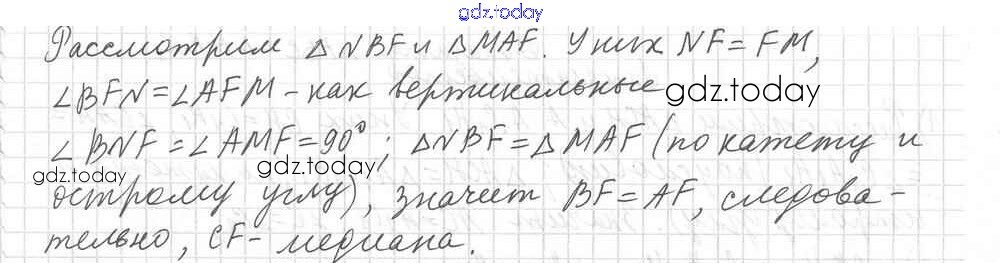 gdz.today
Рассмотрим △NBF и △MAF. У них NF=FM,
∠BFN=∠AFM - как вертикальные
gdz.today
∠BNF=∠AMF=90°; △NBF=△MAF (по катету и
gdz.today
gdz.today
острому углу), значит BF=AF, следова-
тельно, CF- медиана.